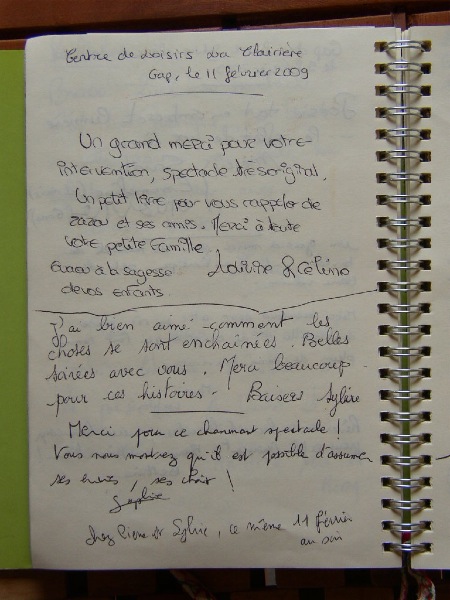 Centre de Loisirs La Clairière
Gap, le 11 février 2009
Un grand merci pour votre
intervention, spectacle très original.
Un petit livre pour vous rappeler de
zazou et ses amis. Merci à toute
votre petite famille.
Bravo à la sagesse
de vos enfants.
J'ai bien aimé comment les
choses se sont enchainées. Belles
soirées avec vous. Merci beaucoup
pour ces histoires. Baisers Sylvie
Merci pour ce charmant spectacle !
Vous nous montrez qu'il est possible d'assumer
ses envies, ses choix !
Sophie
chez Pierre et Sylvie, ce même 11 février
au soir